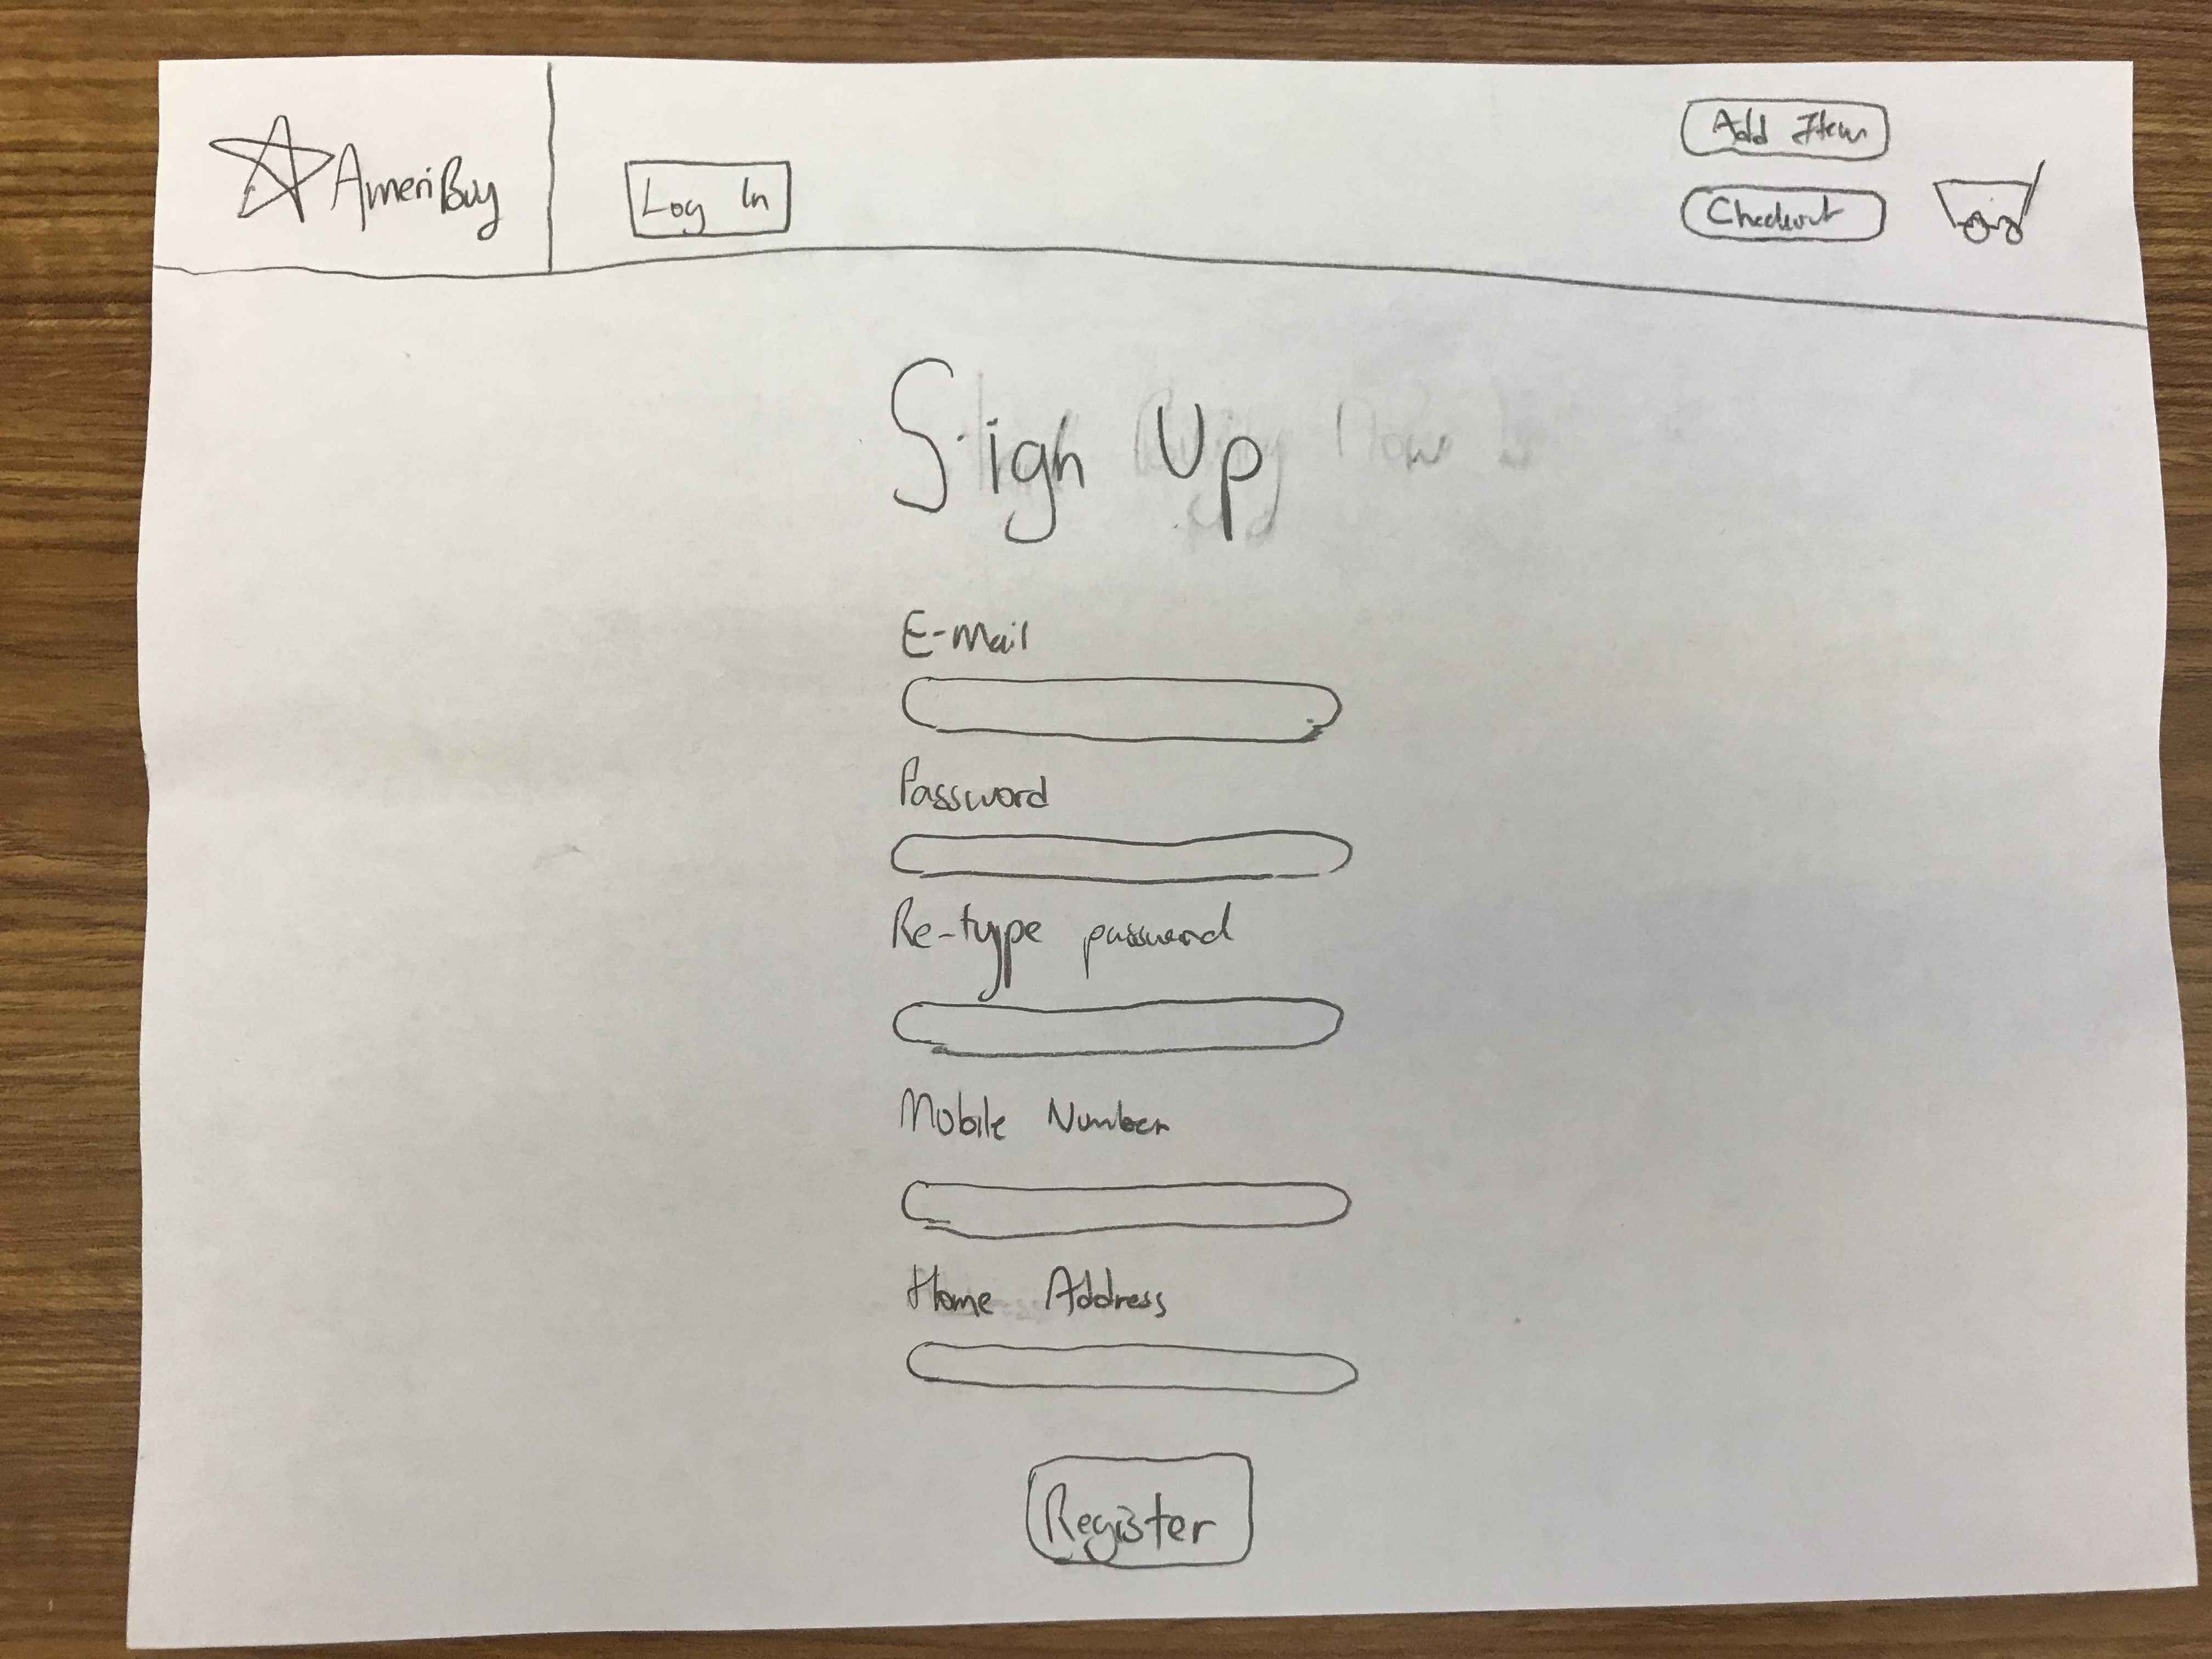 AmeriBuy
Log In
Add Item
Checkout
Sign Up
E-mail
Password
Re-type password
Mobile Number
Home Address
Register